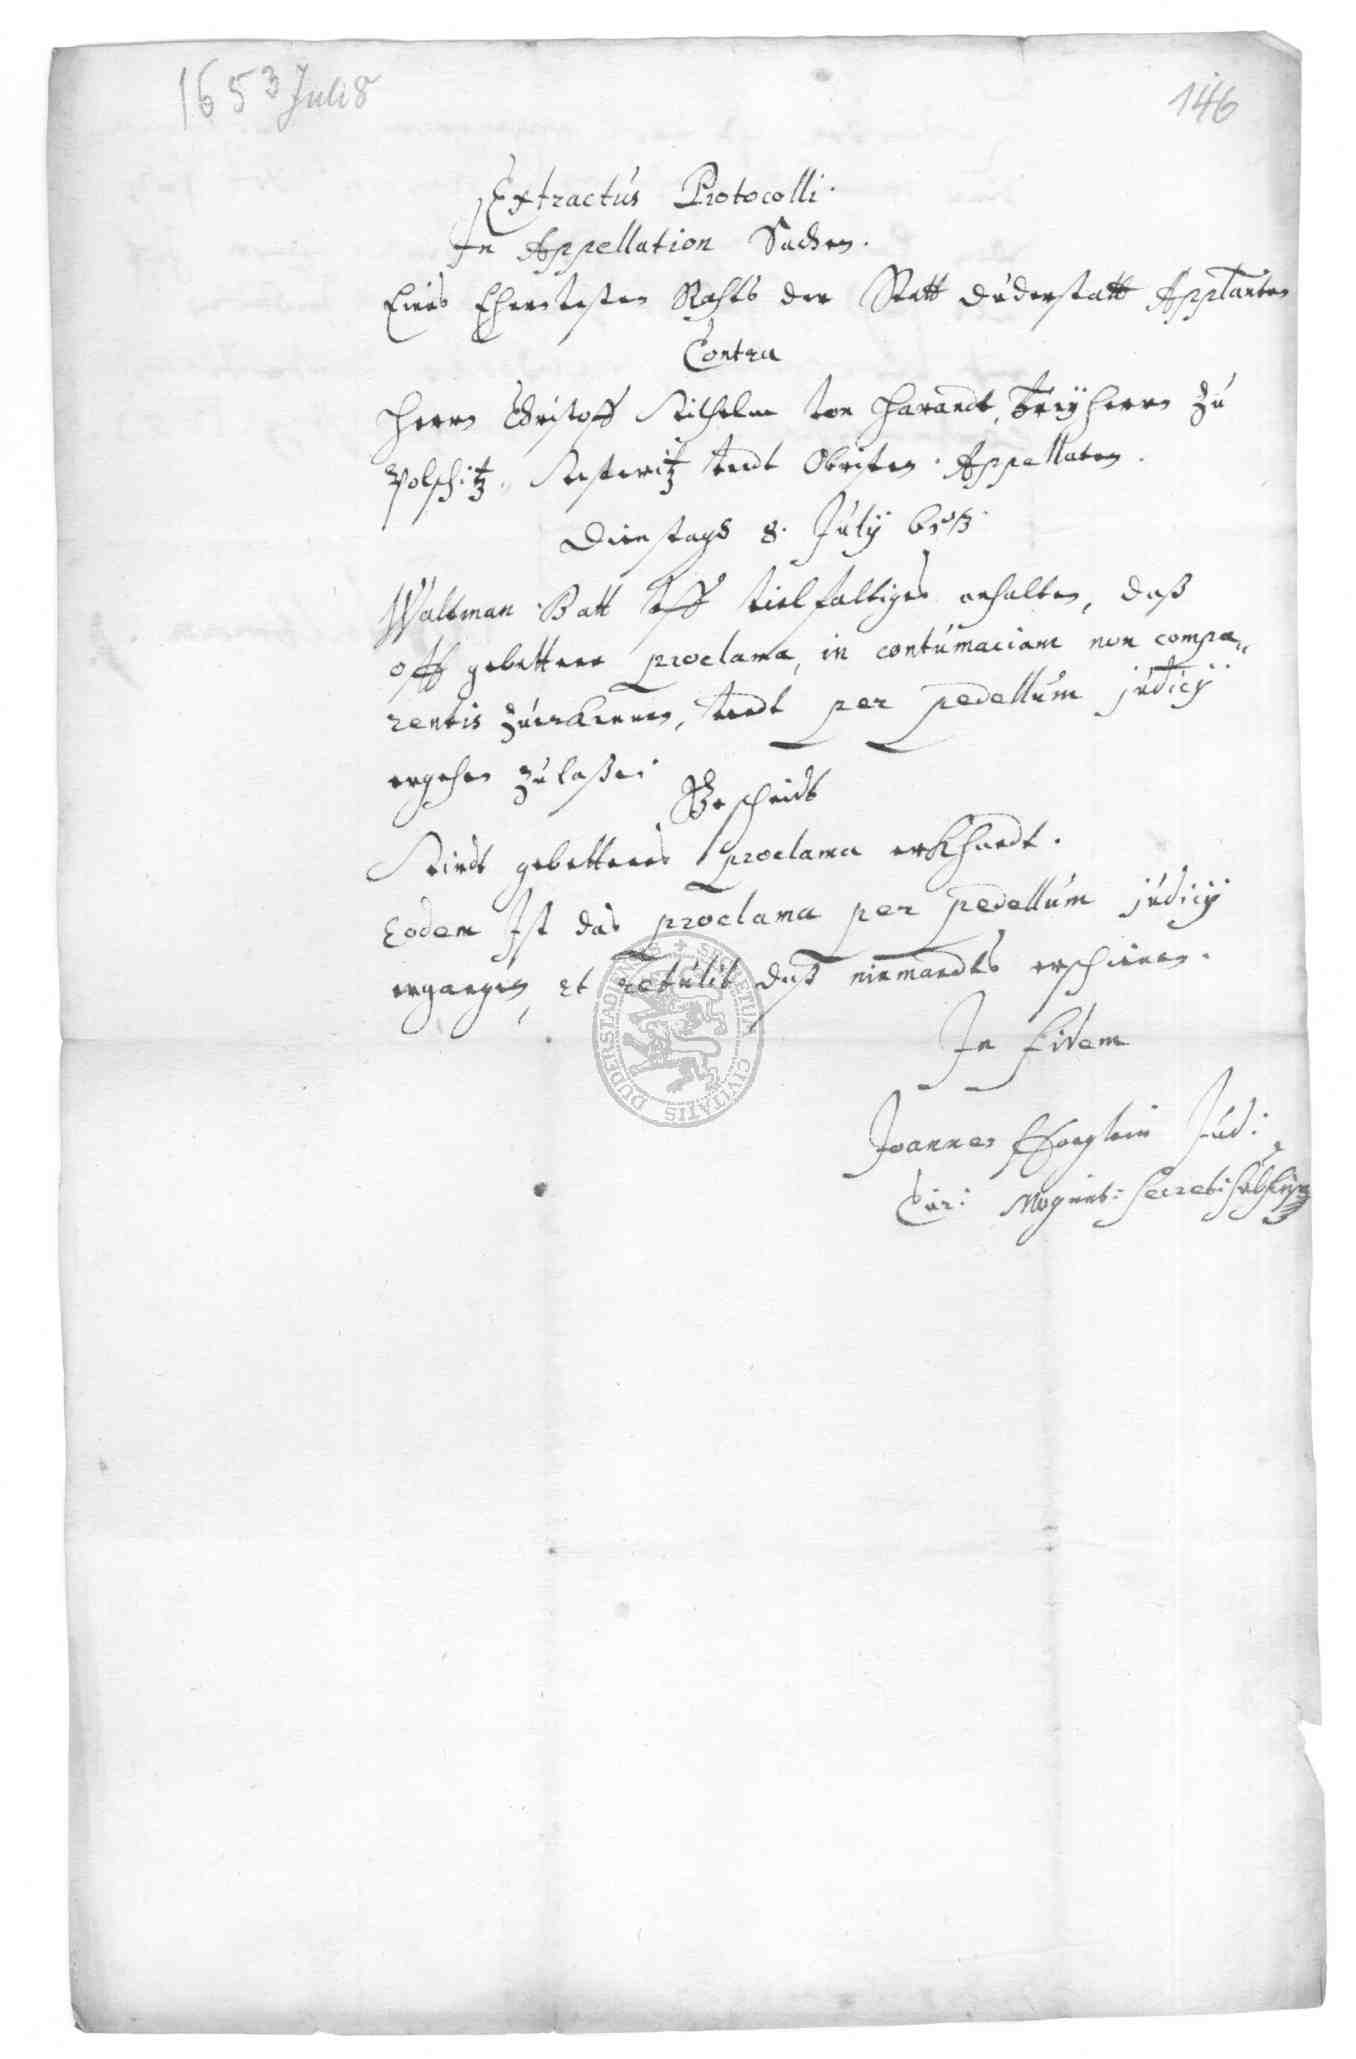 1653 Juli 8
146
Extractus Protocolli.
In Appellation Sachen.
Eines Ehrnvesten Rahts der Statt Duderstatt Applanten
Contra
Herrn Christoff Wilhelm von Harandt, Freyherrn zu
Polschitz, Westeritz vndt Obristen. Appellaten.
Dienstags 8. July 653.
Waltman Batt vff vielfaltiges anhalten, daß
off gebettene proclama, in contumaciam non compa„
rentis zuerkennen, vndt per pedellum judicÿ
ergehen zulaßen.
Bescheidt
Wirdt gebettenes proclama erkhandt.
Eodem Ist das proclama per pedellum judicÿ
ergangen, et retulit daß niemandts erschienen.
In fidem
Joannes Jud:
Cur: Mogunt: Secret: subscr
SECRETUM CIVITATIS DUDERSTADIENSIS